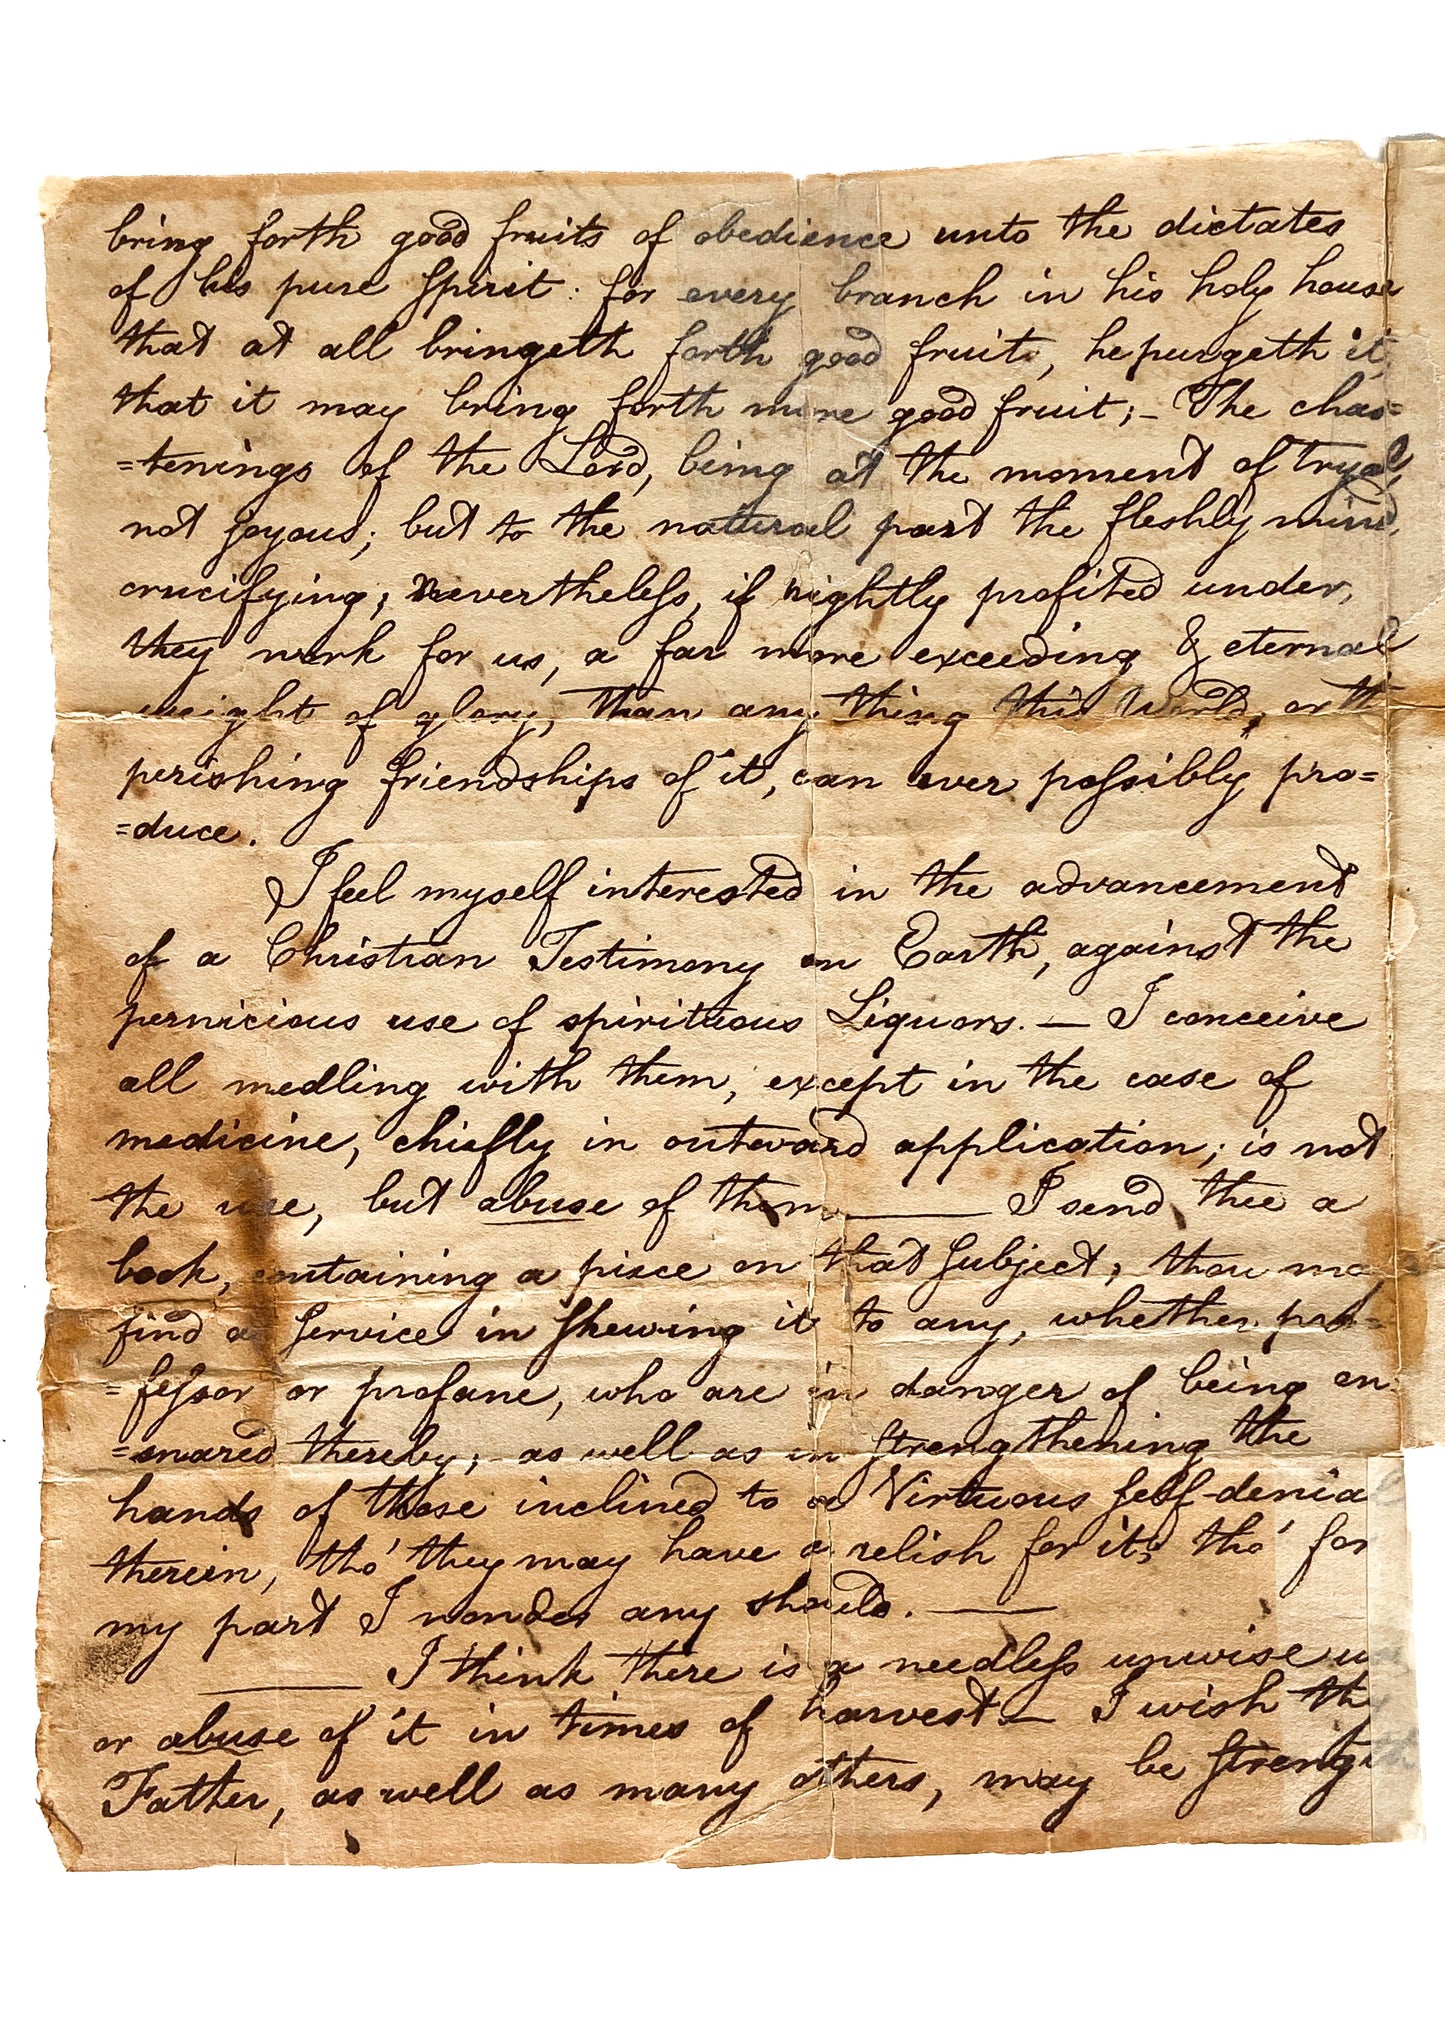 bring forth good fruits of obedience unto the dictates
of his pure Spirit: for every branch in his holy house
that at all bringeth forth good fruit, he purgeth it,
that it may bring forth more good fruit;- The chas=
=tenings of the Lord, being at the moment of tryal,
not joyous; but to the natural part the fleshly mind,
crucifying; Nevertheless, if rightly profited under,
they work for us, a far more exceeding & eternal
weight of glory, than any thing this World, or th
perishing friendships of it, can ever possibly pro=
=duce.
I feel myself interested in the advancement
of a Christian Testimony on Earth, against the
pernicious use of spirituous Liquors. — I conceive
all medling with them, except in the case of
medicine, chiefly in outward application; is not
the use, but abuse of them —— I send thee a
book, containing a piece on that Subject; thou ma
find a Service in Shewing it to any, whether pro=
=fessor or profane, who are in danger of being en=
=snared thereby; as well as in Strengthening the
hands of those inclined to a Virtuous Self-denial
therein, tho' they may have a relish for it; tho' for
my part I wonder any should. ——
—— I think there is a needless unwise u
or abuse of it in times of harvest — I wish thy
Father, as well as many others, may be Strength